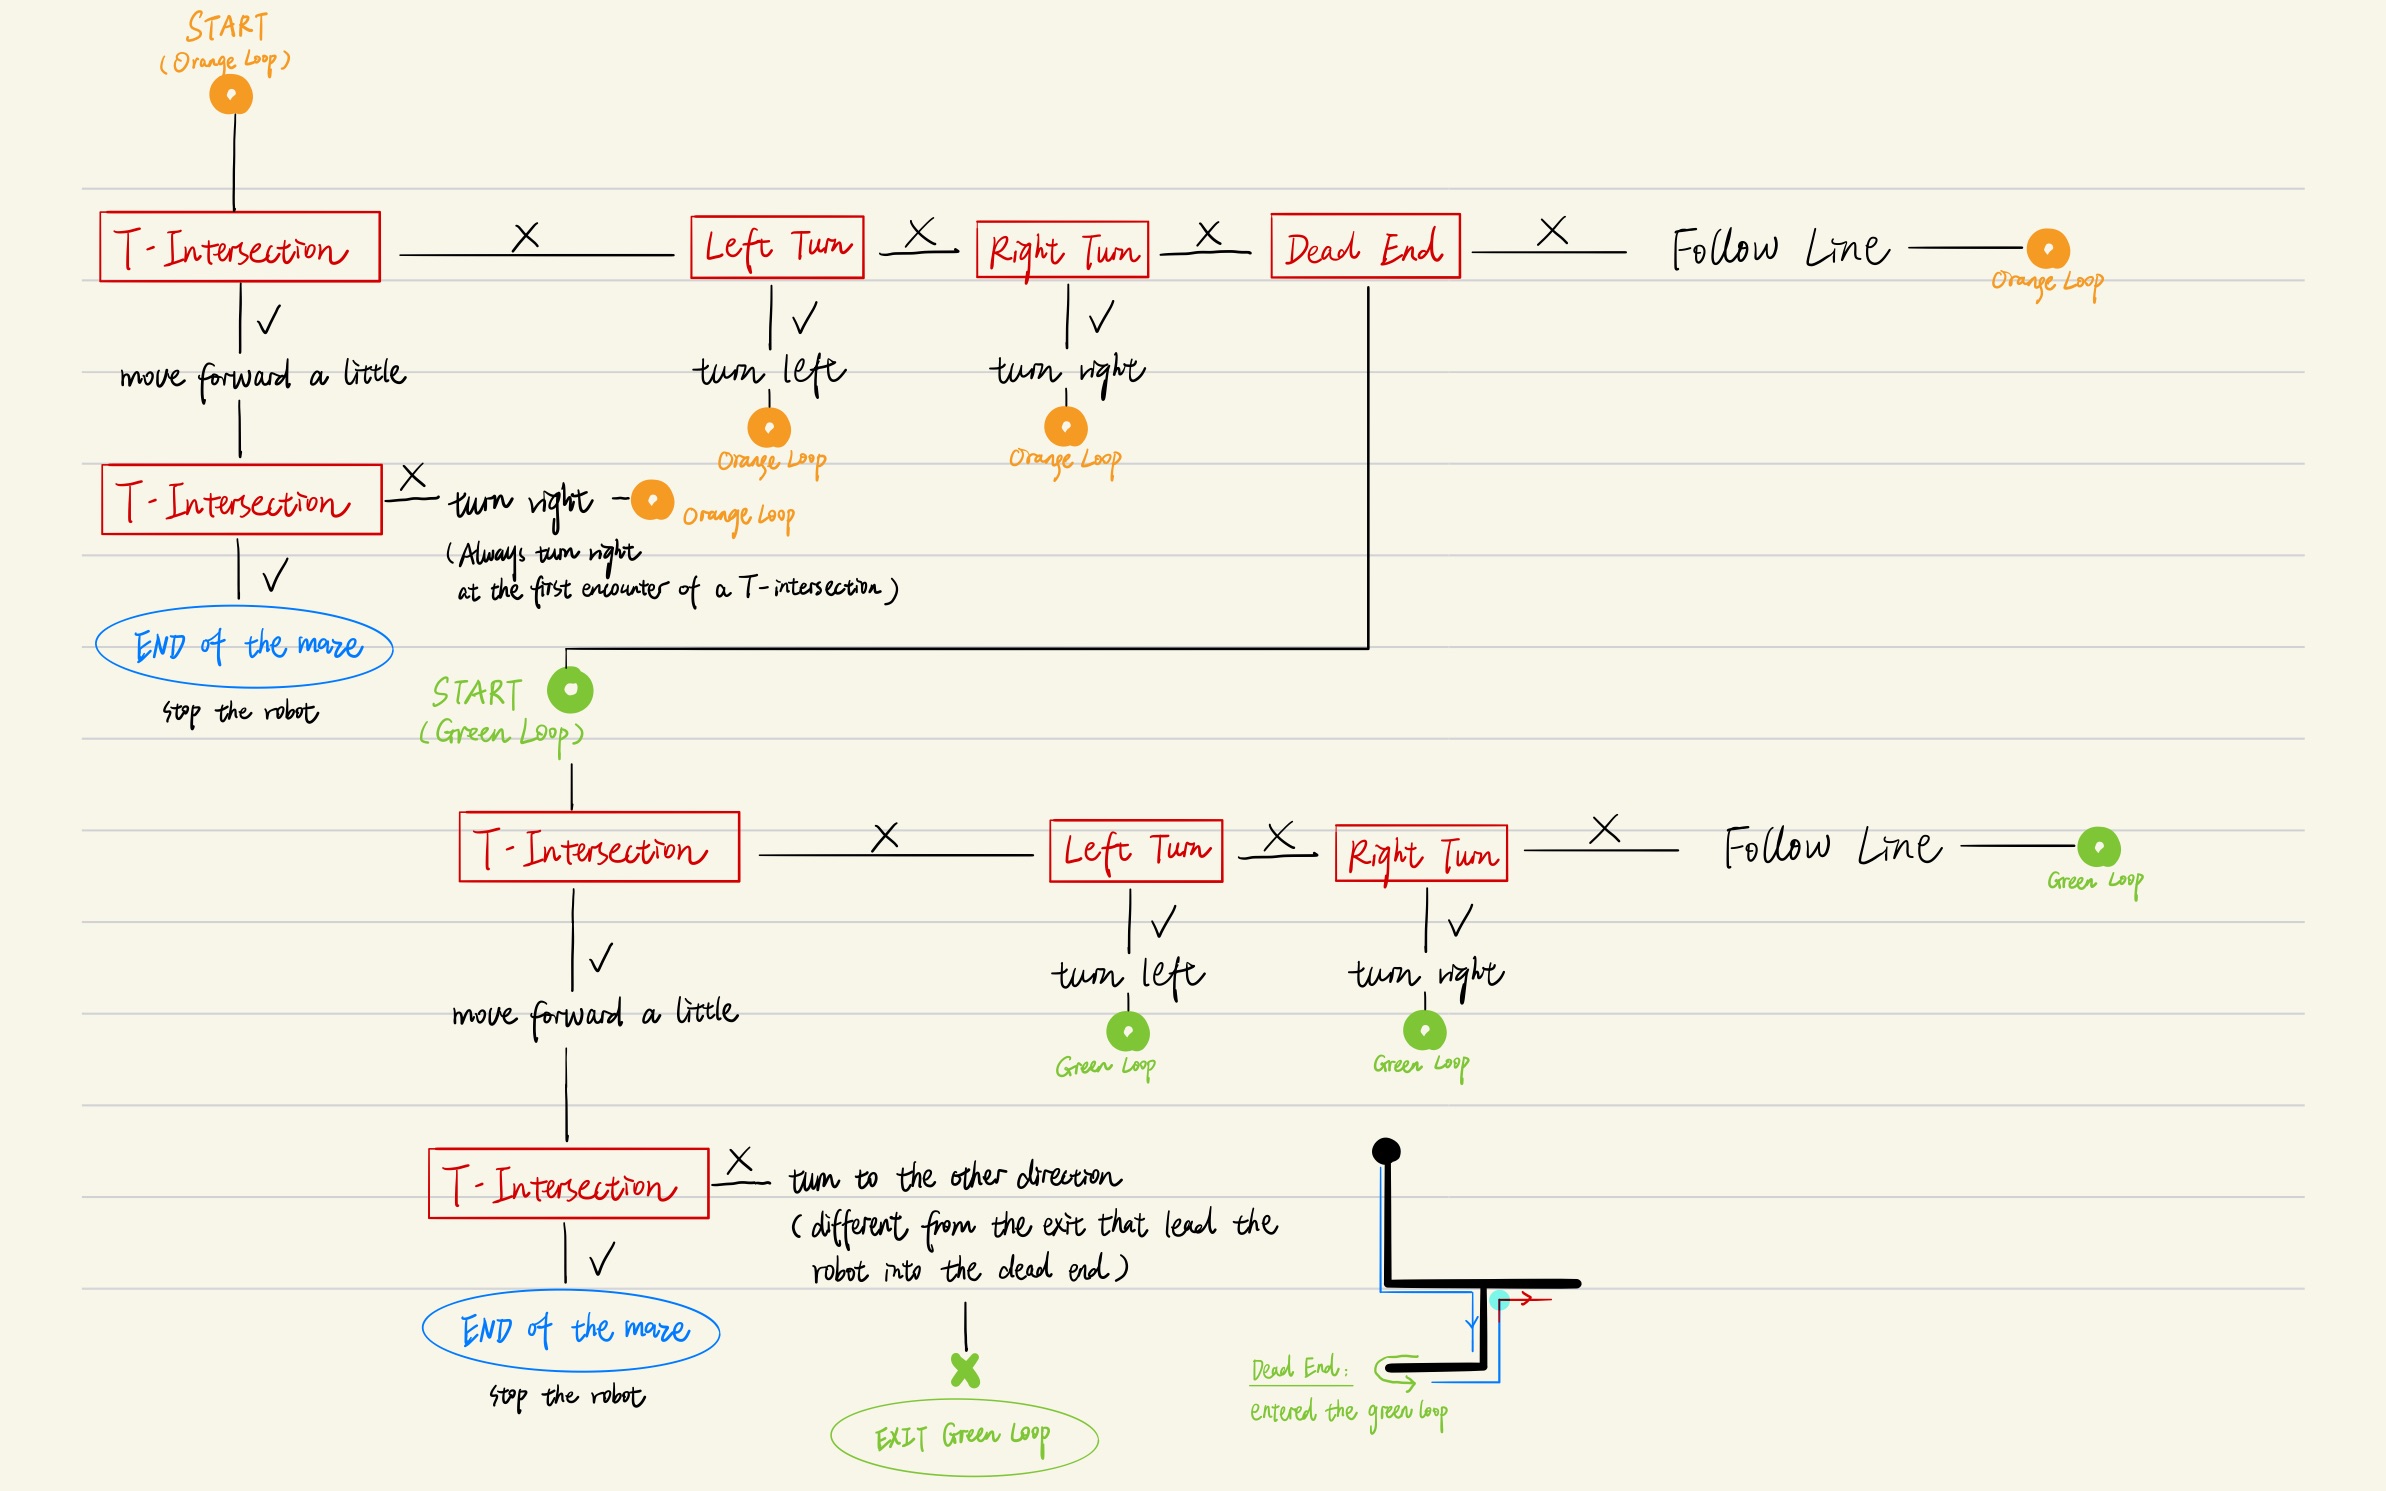 START
(Orange Loop)
T-Intersection
X
Left Turn
X
Right Turn
X
Dead End
X
Follow Line
Orange Loop
✓
move forward a little
✓
turn left
Orange Loop
✓
turn right
Orange Loop
T-Intersection
X
turn right
Orange Loop
(Always turn right
at the first encounter of a T-intersection)
✓
END of the maze
stop the robot
START
(Green Loop)
T-Intersection
X
Left Turn
X
Right Turn
X
Follow Line
Green Loop
✓
move forward a little
✓
turn left
Green Loop
✓
turn right
Green Loop
T-Intersection
X
turn to the other direction
(different from the exit that lead the
robot into the dead end)
✓
END of the maze
stop the robot
EXIT Green Loop
Dead End:
entered the green loop